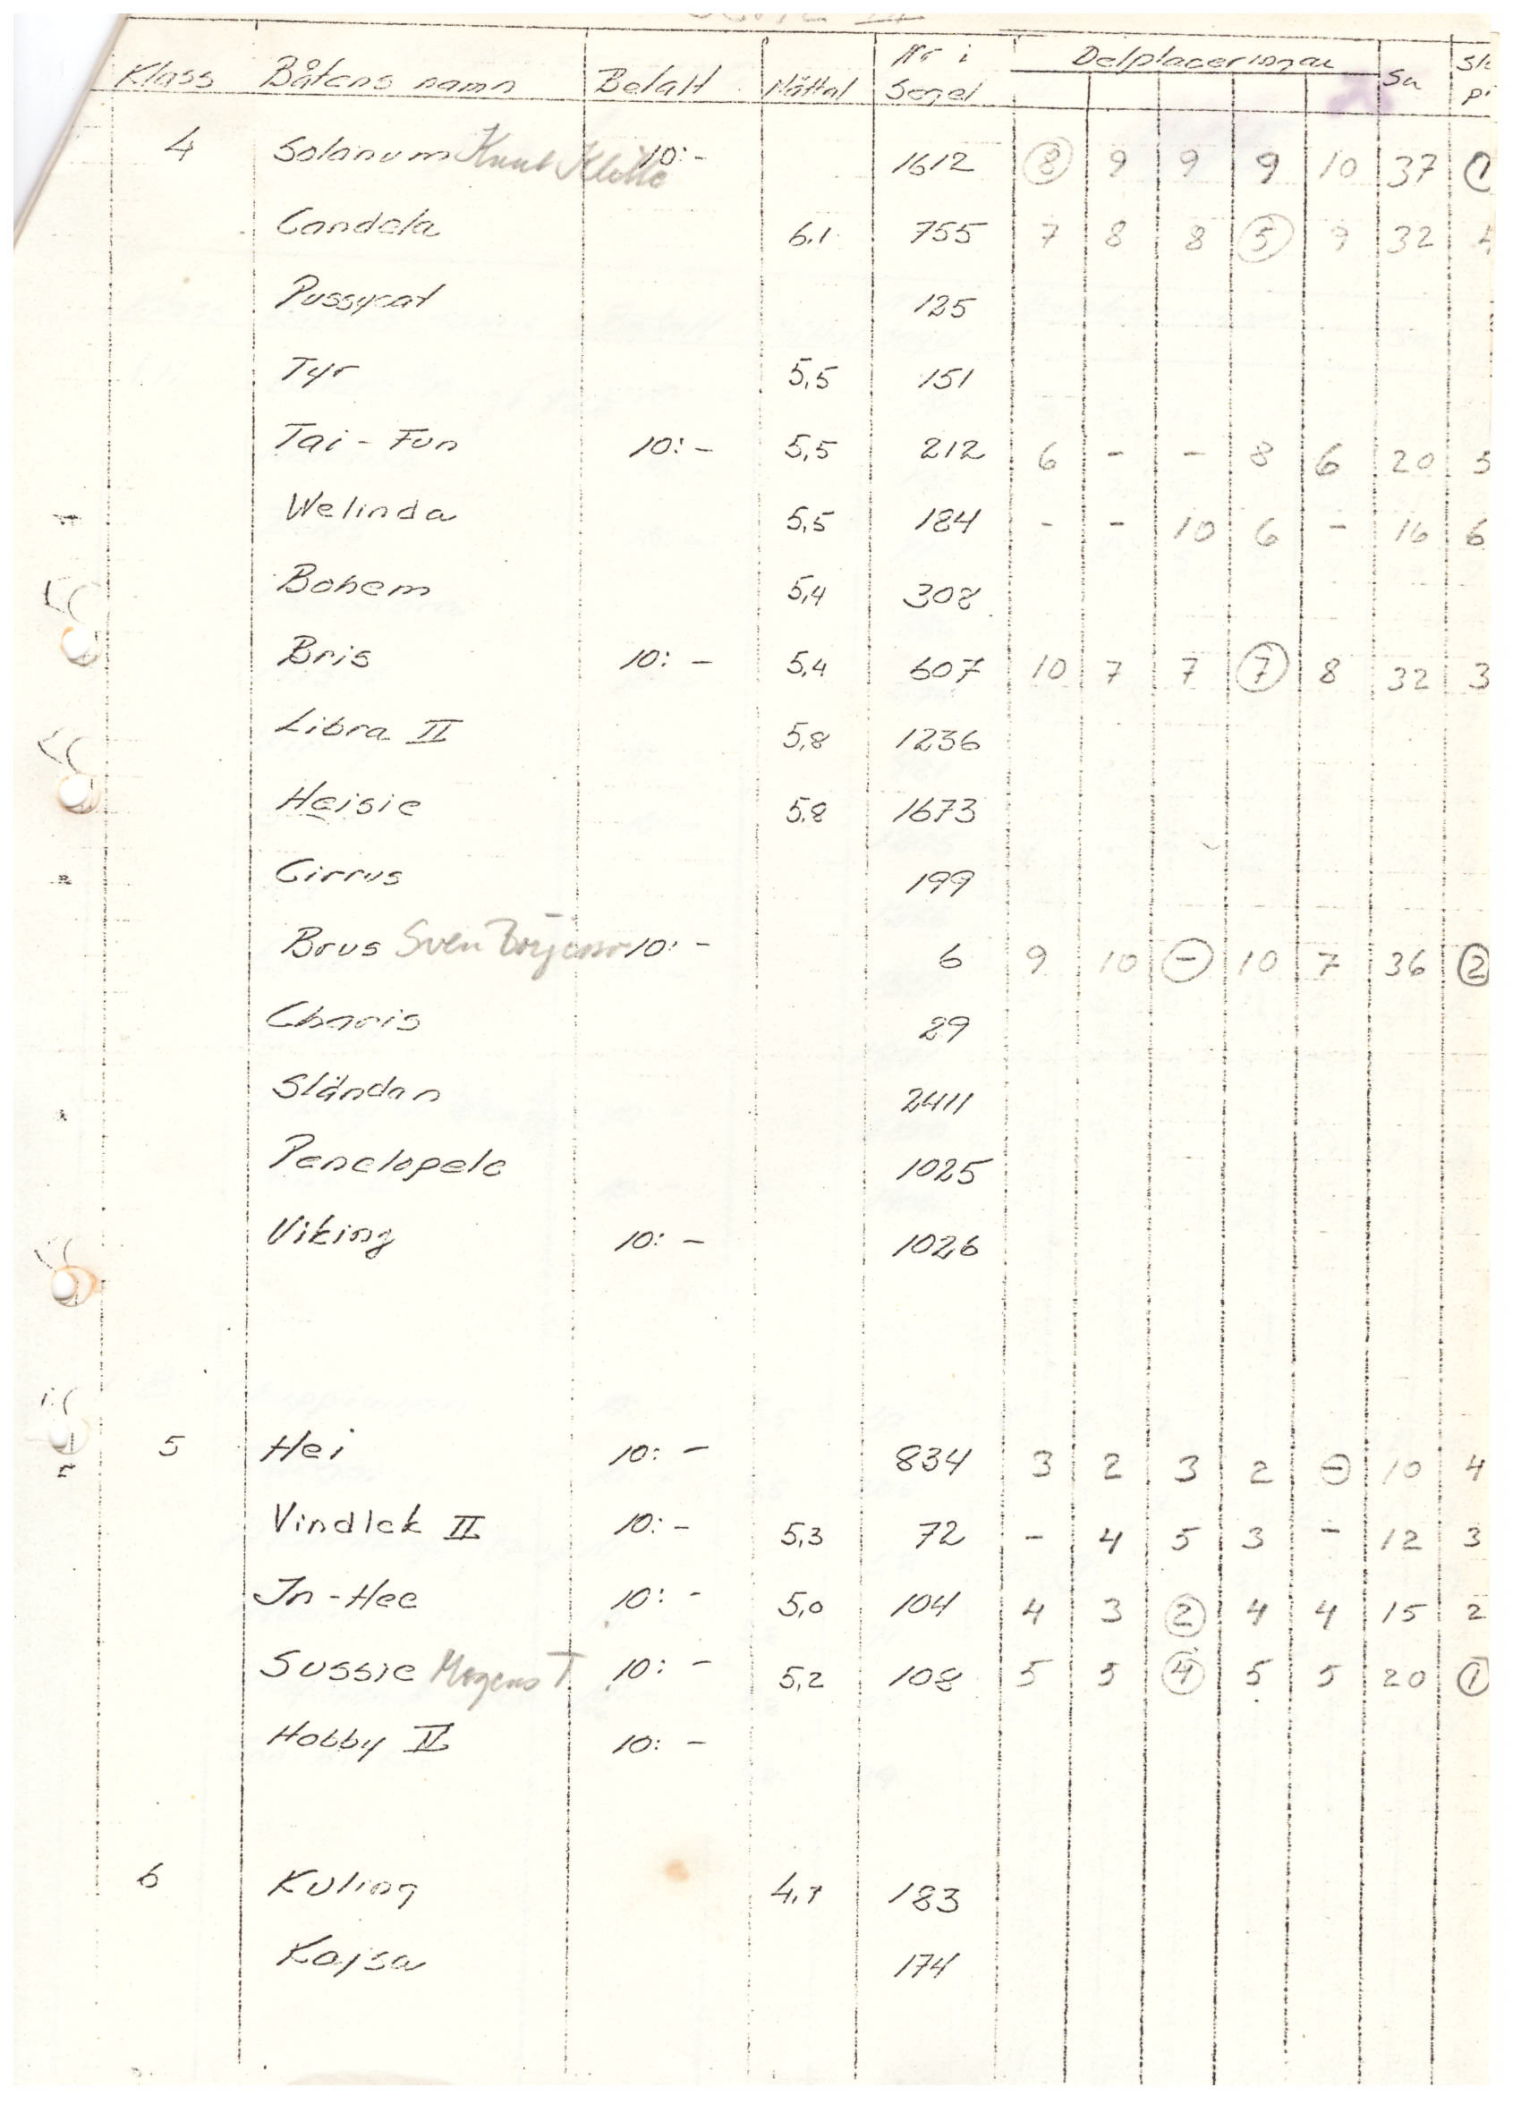 Klass Båtens namn Betalt Mättal Nr i Segel Delplaceringar Su
4 Solanum 10:- 1612 8 9 9 9 10 37 1
Candela 6.1 755 7 8 8 5 9 32 4
Pussycat 125
Tyr 5,5 151
Tai-Fun 10:- 5,5 212 6 - - 8 6 20 5
Welinda 5,5 184 - - 10 6 - 16 6
Bohem 5,4 308
Bris 10:- 5,4 607 10 7 7 7 8 32 3
Libra II 5,8 1236
Heisie 5.8 1673
Cirrus 199
Brus Sven Börjesson 10:- 6 9 10 - 10 7 36 2
Charis 29
Sländan 2411
Penelopele 1025
Viking 10:- 1026
5 Hei 10:- 834 3 2 3 2 - 10 4
Vindlek II 10:- 5,3 72 - 4 5 3 - 12 3
In-Hee 10:- 5,0 104 4 3 2 4 4 15 2
Sussie Mogens T 10:- 5,2 108 5 5 4 5 5 20 1
Hobby II 10:-
6 Kuling 4,7 183
Kajsa 174